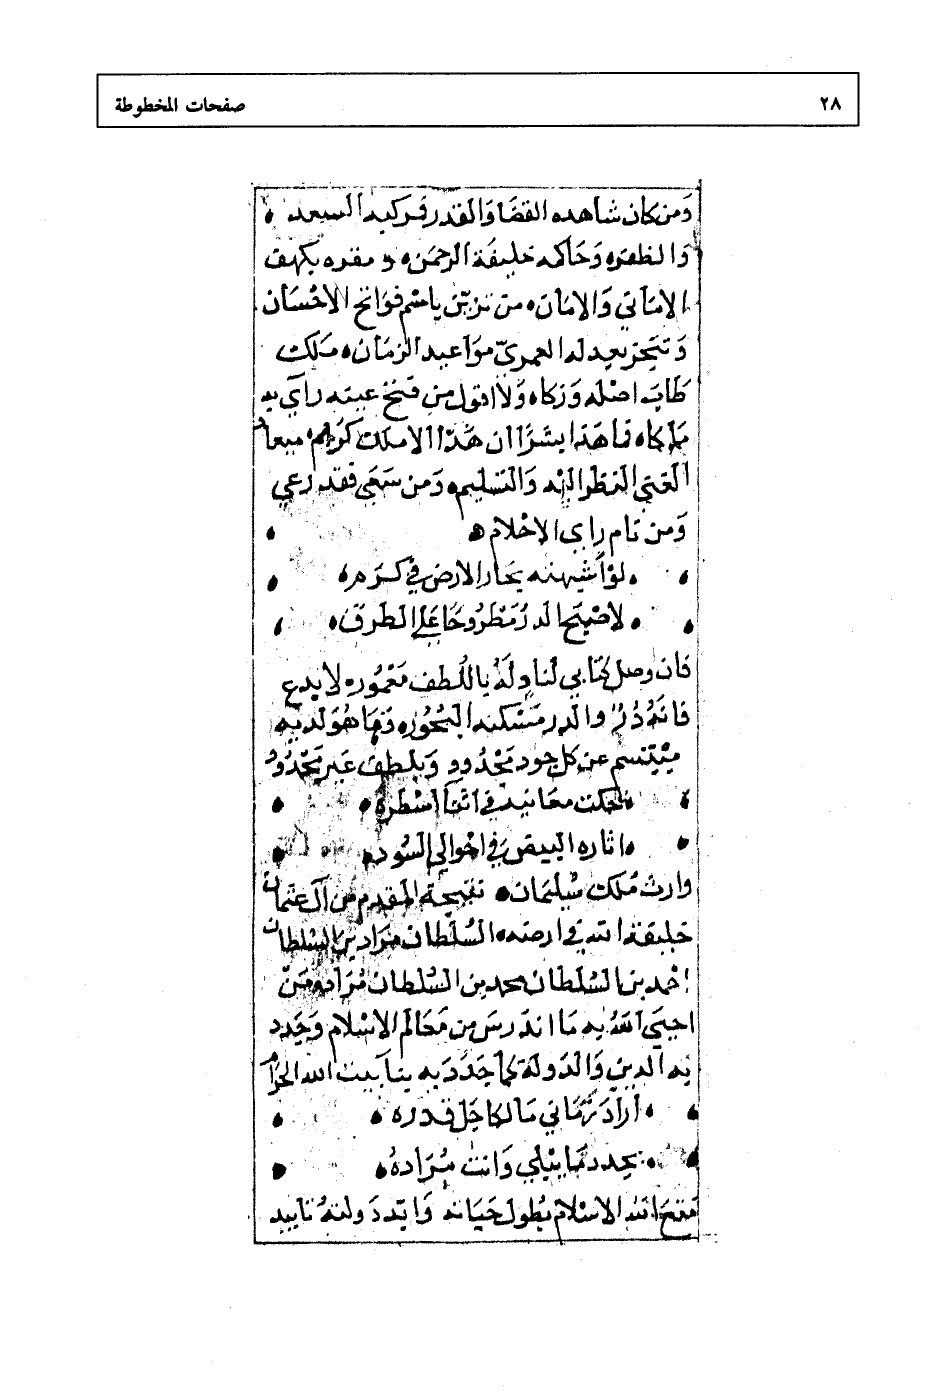 ٢٨ صفحات المخطوطة
وَمن كان شاهده القضَا وَالقدر السعد
وَالظفر وَحَاكه خليفَة الرحمَن و مقره بكهف
الامَاني وَالامَان من تزيّن باسم فوَاتح الاحْسَان
العمريّ موَاعيد الزمَان مَلك
طَابَ اصْله وَزكا وَلا اقول من فتح عينه رآي به
مَلكا مَا هَذا بشرًا ان هَذا الا ملك كريم
النظر اليْه وَالتسليم وَمن سَعَى فقد رعي
وَمن نام راى الاحْلام
لوْ أشبهته بحار الارض في كرم
لاصْبَح الدر مَطرُوحًا عَلى الطرق
باللُطف مَعْمُوره لا يدع
فانهُ دُرٌ والدر مَسْكنه البُحُوره هُوَ لديه
عن كل جود مَحْدُود وَبلطف غير مَحْدُود
معانيه في اثنآ اسْطره
اثاره البيض في احْوالي السُود
وارث مُلك سُليمَان نتيجة المقدم من آل عثمان
خليفة الله في ارضه السُلطان مرَاد بن السُلطان
احْمد بن السُلطان محمد بن السُلطان مُرَاد مَنْ
احيَى اللهُ به مَا اندَرسَ من مَعَالم الاسْلام وَجَدد
به الدين وَالدَولة كما جَدد به بنآ بيت الله الحرَام
أرَادَ زمَاني مَالكا جَل قدره
يجدد مَا يبْلي وَانتَ مُرَادهُ
مَتعَ الله الاسْلام بطول حَيَاته وَايّدَ دَولتهُ تاييد